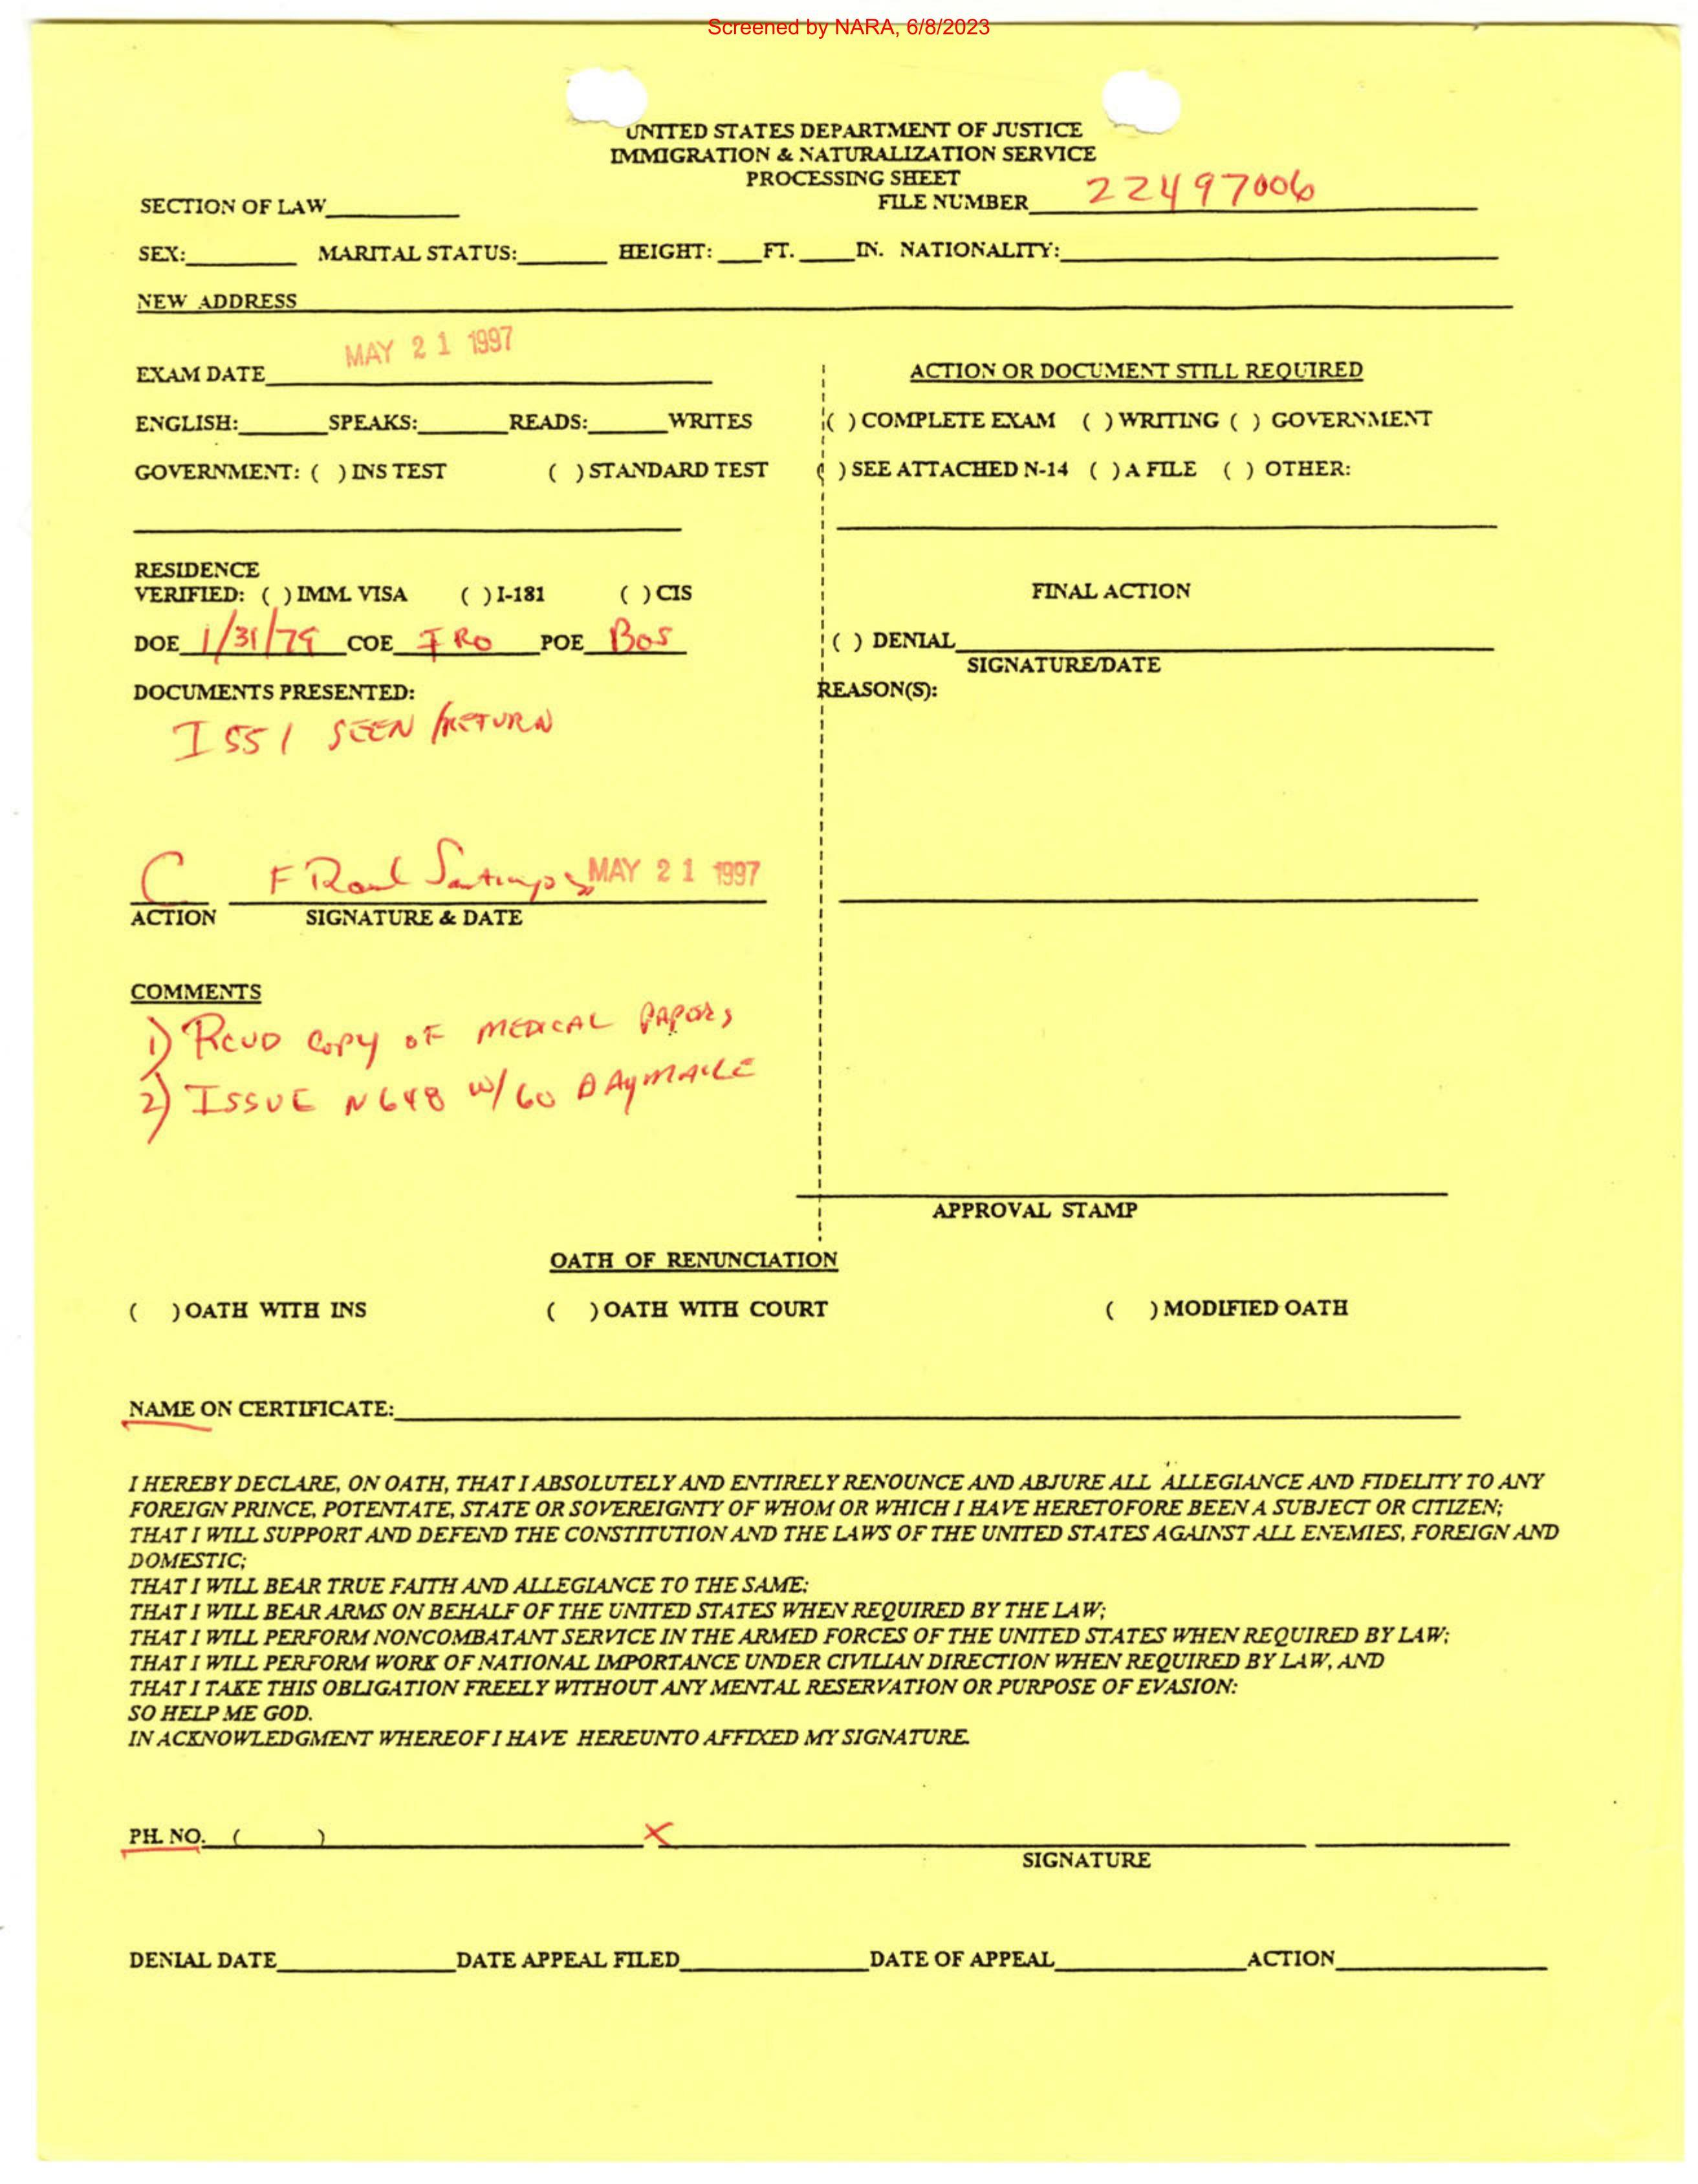 Screened by NARA, 6/8/2023
UNITED STATES DEPARTMENT OF JUSTICE
IMMIGRATION & NATURALIZATION SERVICE
PROCESSING SHEET
SECTION OF LAW FILE NUMBER 22497006
SEX: MARITAL STATUS: HEIGHT: FT. IN. NATIONALITY:
NEW ADDRESS
EXAM DATE MAY 21 1997
ENGLISH: SPEAKS: READS: WRITES
GOVERNMENT: ( ) INS TEST ( ) STANDARD TEST
RESIDENCE
VERIFIED: ( ) IMM. VISA ( ) I-181 ( ) CIS
DOE 1/31/79 COE IRO POE BOS
DOCUMENTS PRESENTED:
I 551 SEEN/RETURN
C F Raul MAY 21 1997
ACTION SIGNATURE & DATE
COMMENTS
1) RCVD COPY OF MEDICAL PAPERS
2) ISSUE N648 W/60 DAY
ACTION OR DOCUMENT STILL REQUIRED
( ) COMPLETE EXAM ( ) WRITING ( ) GOVERNMENT
( ) SEE ATTACHED N-14 ( ) A FILE ( ) OTHER:
FINAL ACTION
( ) DENIAL
SIGNATURE/DATE
REASON(S):
APPROVAL STAMP
OATH OF RENUNCIATION
( ) OATH WITH INS ( ) OATH WITH COURT ( ) MODIFIED OATH
NAME ON CERTIFICATE:
I HEREBY DECLARE, ON OATH, THAT I ABSOLUTELY AND ENTIRELY RENOUNCE AND ABJURE ALL ALLEGIANCE AND FIDELITY TO ANY
FOREIGN PRINCE, POTENTATE, STATE OR SOVEREIGNTY OF WHOM OR WHICH I HAVE HERETOFORE BEEN A SUBJECT OR CITIZEN;
THAT I WILL SUPPORT AND DEFEND THE CONSTITUTION AND THE LAWS OF THE UNITED STATES AGAINST ALL ENEMIES, FOREIGN AND
DOMESTIC;
THAT I WILL BEAR TRUE FAITH AND ALLEGIANCE TO THE SAME;
THAT I WILL BEAR ARMS ON BEHALF OF THE UNITED STATES WHEN REQUIRED BY THE LAW;
THAT I WILL PERFORM NONCOMBATANT SERVICE IN THE ARMED FORCES OF THE UNITED STATES WHEN REQUIRED BY LAW;
THAT I WILL PERFORM WORK OF NATIONAL IMPORTANCE UNDER CIVILIAN DIRECTION WHEN REQUIRED BY LAW, AND
THAT I TAKE THIS OBLIGATION FREELY WITHOUT ANY MENTAL RESERVATION OR PURPOSE OF EVASION:
SO HELP ME GOD.
IN ACKNOWLEDGMENT WHEREOF I HAVE HEREUNTO AFFIXED MY SIGNATURE.
PH. NO. ( ) X
SIGNATURE
DENIAL DATE DATE APPEAL FILED DATE OF APPEAL ACTION